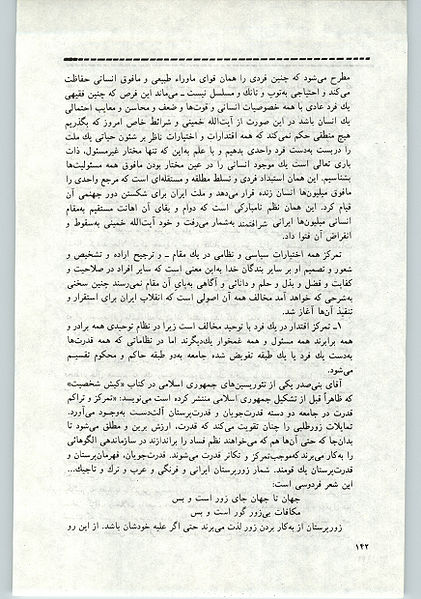 مطرح می‌شود که چنین فردی را همان قوای ماوراء طبیعی و مافوق انسانی حفاظت
می‌کند و احتیاجی به‌توپ و تانك و مسلسل نیست ـ می‌ماند این فرض که چنین فقیهی
یك فرد عادی با همه خصوصیات انسانی و قوت‌ها و ضعف و محاسن و معایب احتمالی
یك انسان باشد در این صورت از آیت‌الله خمینی و شرائط خاص امروز که بگذریم
هیچ منطقی حکم نمی‌کند که همه اقتدارات و اختیارات ناظر بر شئون حیاتی یك ملت
را دربست به‌دست فرد واحدی بدهیم و با علم به‌این که تنها مختار غیرمسئول، ذات
باری تعالی است یك موجود انسانی را در عین مختار بودن مافوق همه مسئولیت‌ها
بشناسیم. این همان استبداد فردی و تسلط مطلقه و مستقله‌ای است که مرجع واحدی را
مافوق میلیون‌ها انسان زنده قرار می‌دهد و ملت ایران برای شکستن دور جهنمی آن
قیام کرد. این همان نظم نامبارکی است که دوام و بقای آن اهانت مستقیم به‌مقام
انسانی میلیون‌ها ایرانی شرافتمند به‌شمار می‌رفت و خود آیت‌الله خمینی به‌سقوط و
انقراض آن فتوا داد.
تمرکز همه اختیارات سیاسی و نظامی در یك مقام ـ و ترجیح اراده و تشخیص و
شعور و تصمیم او بر سایر بندگان خدا به‌این معنی است که سایر افراد در صلاحیت و
کفایت و فضل و بذل و حلم و دانائی و آگاهی به‌پای آن مقام نمی‌رسند چنین سخنی
به‌شرحی که خواهد آمد مخالف همه آن اصولی است که انقلاب ایران برای استقرار و
تنفیذ آن‌ها آغاز شد.
۱ـ تمرکز اقتدار در یك فرد با توحید مخالف است زیرا در نظام توحیدی همه برادر و
همه برابرند همه مسئول و همه غمخوار یك‌دیگرند اما در نظاماتی که همه قدرت‌ها
به‌دست یك فرد یا یك طبقه تفویض شده جامعه به‌دو طبقه حاکم و محکوم تقسیم
می‌شود.
آقای بنی‌صدر یکی از تئوریسین‌های جمهوری اسلامی در کتاب «کیش شخصیت»
که ظاهراً قبل از تشکیل جمهوری اسلامی منتشر کرده است می‌نویسد: «تمرکز و تراکم
قدرت در جامعه دو دسته قدرت‌جویان و قدرت‌پرستان آلت‌دست به‌وجود می‌آورد.
تمایلات زورطلبی را چنان تقویت می‌کند که قدرت، ارزش برین و مطلق می‌شود تا
بدان‌جا که حتی آن‌ها هم که می‌خواهند نظم فساد را براندازند در سازماندهی الگوهائی
را به‌کار می‌برند که‌موجب‌تمرکز و تکاثر قدرت می‌شوند. قدرت‌جویان، قهرمان‌پرستان و
قدرت‌پرستان یك قومند. شمار زورپرستان ایرانی و فرنگی و عرب و ترك و تاجیك...
این شعر فردوسی است:
جهان تا جهان جای زور است و بس
مکافات بی‌زور گور است و بس
زورپرستان از به‌کار بردن زور لذت می‌برند حتی اگر علیه خودشان باشد. از این رو
۱۴۲